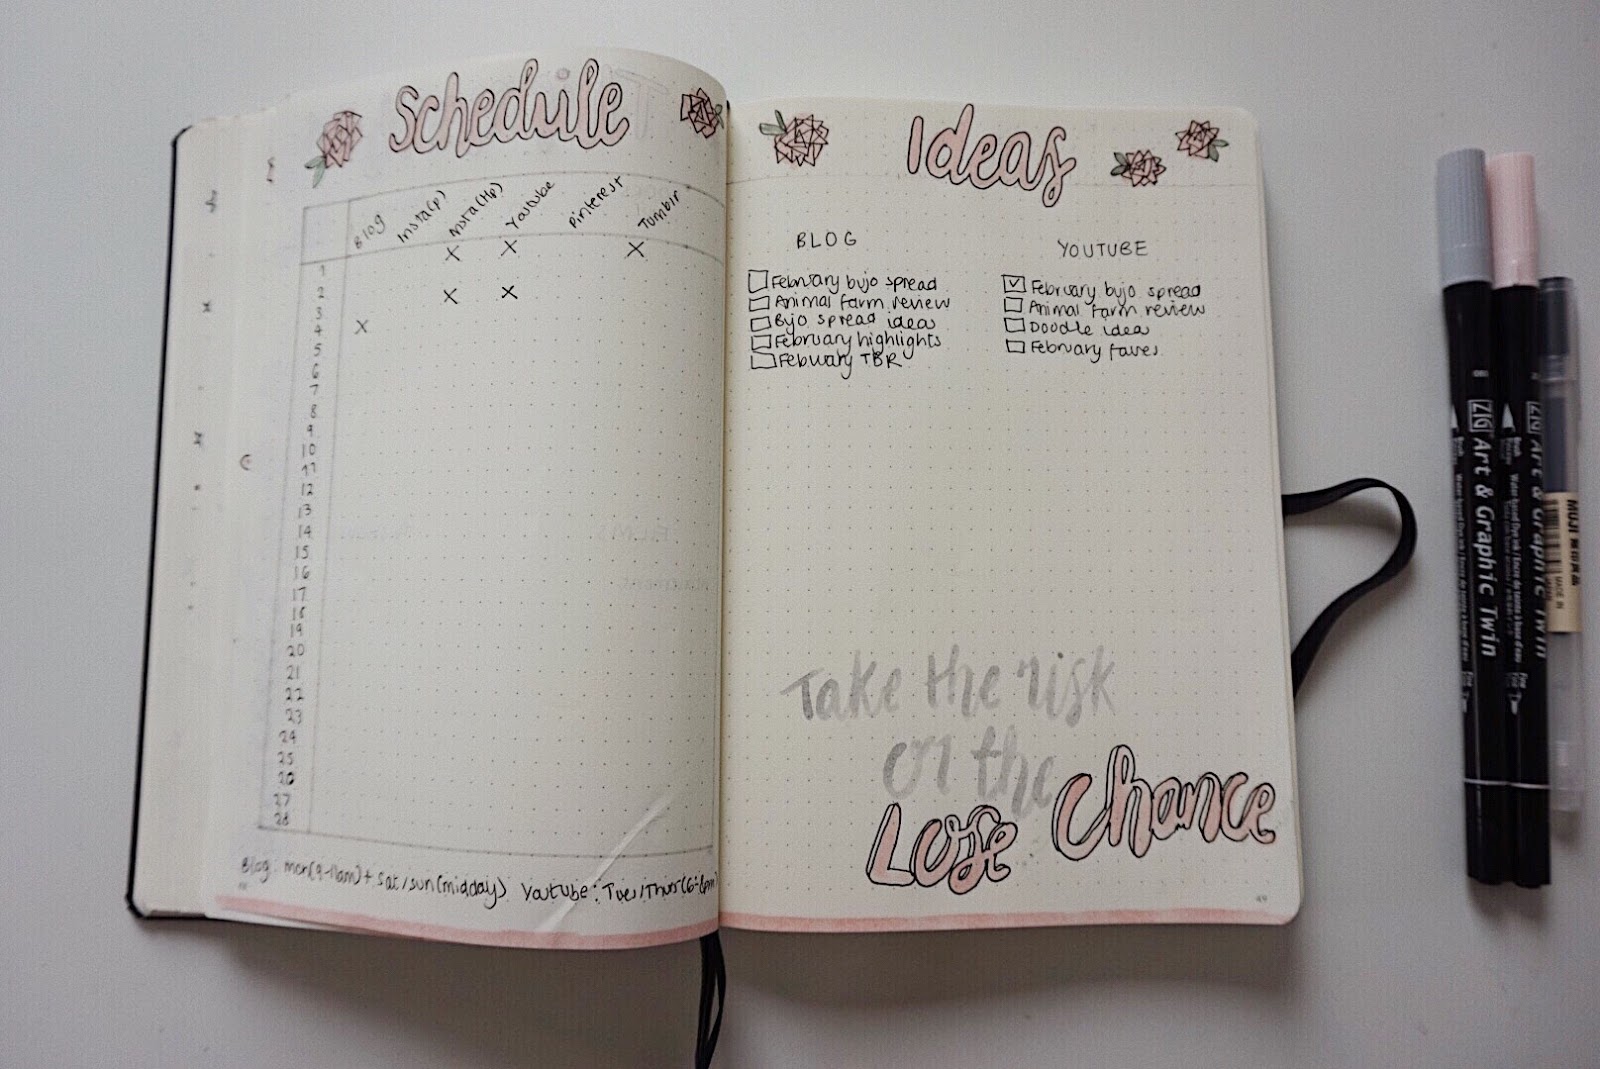 Schedule
Blog
Insta(P)
Insta(Hp)
Youtube
Pinterest
Tumblr
1
X X X
2
X X
3
4
X
5
6
7
8
9
10
11
12
13
14
15
16
17
18
19
20
21
22
23
24
25
26
27
28
Blog: mon(9-11am)+ sat/sun(midday) Youtube: Tues/Thurs
Ideas
BLOG
February bujo spread
Animal farm review
Bujo spread ideas
February highlights
February TBR
YOUTUBE
February bujo spread
Animal farm review
Doodle idea
February faves
Take the risk
or the
Lose Chance
49
ZIG Art & Graphic Twin
ZIG Art & Graphic Twin
MUJI 無印良品
MADE IN